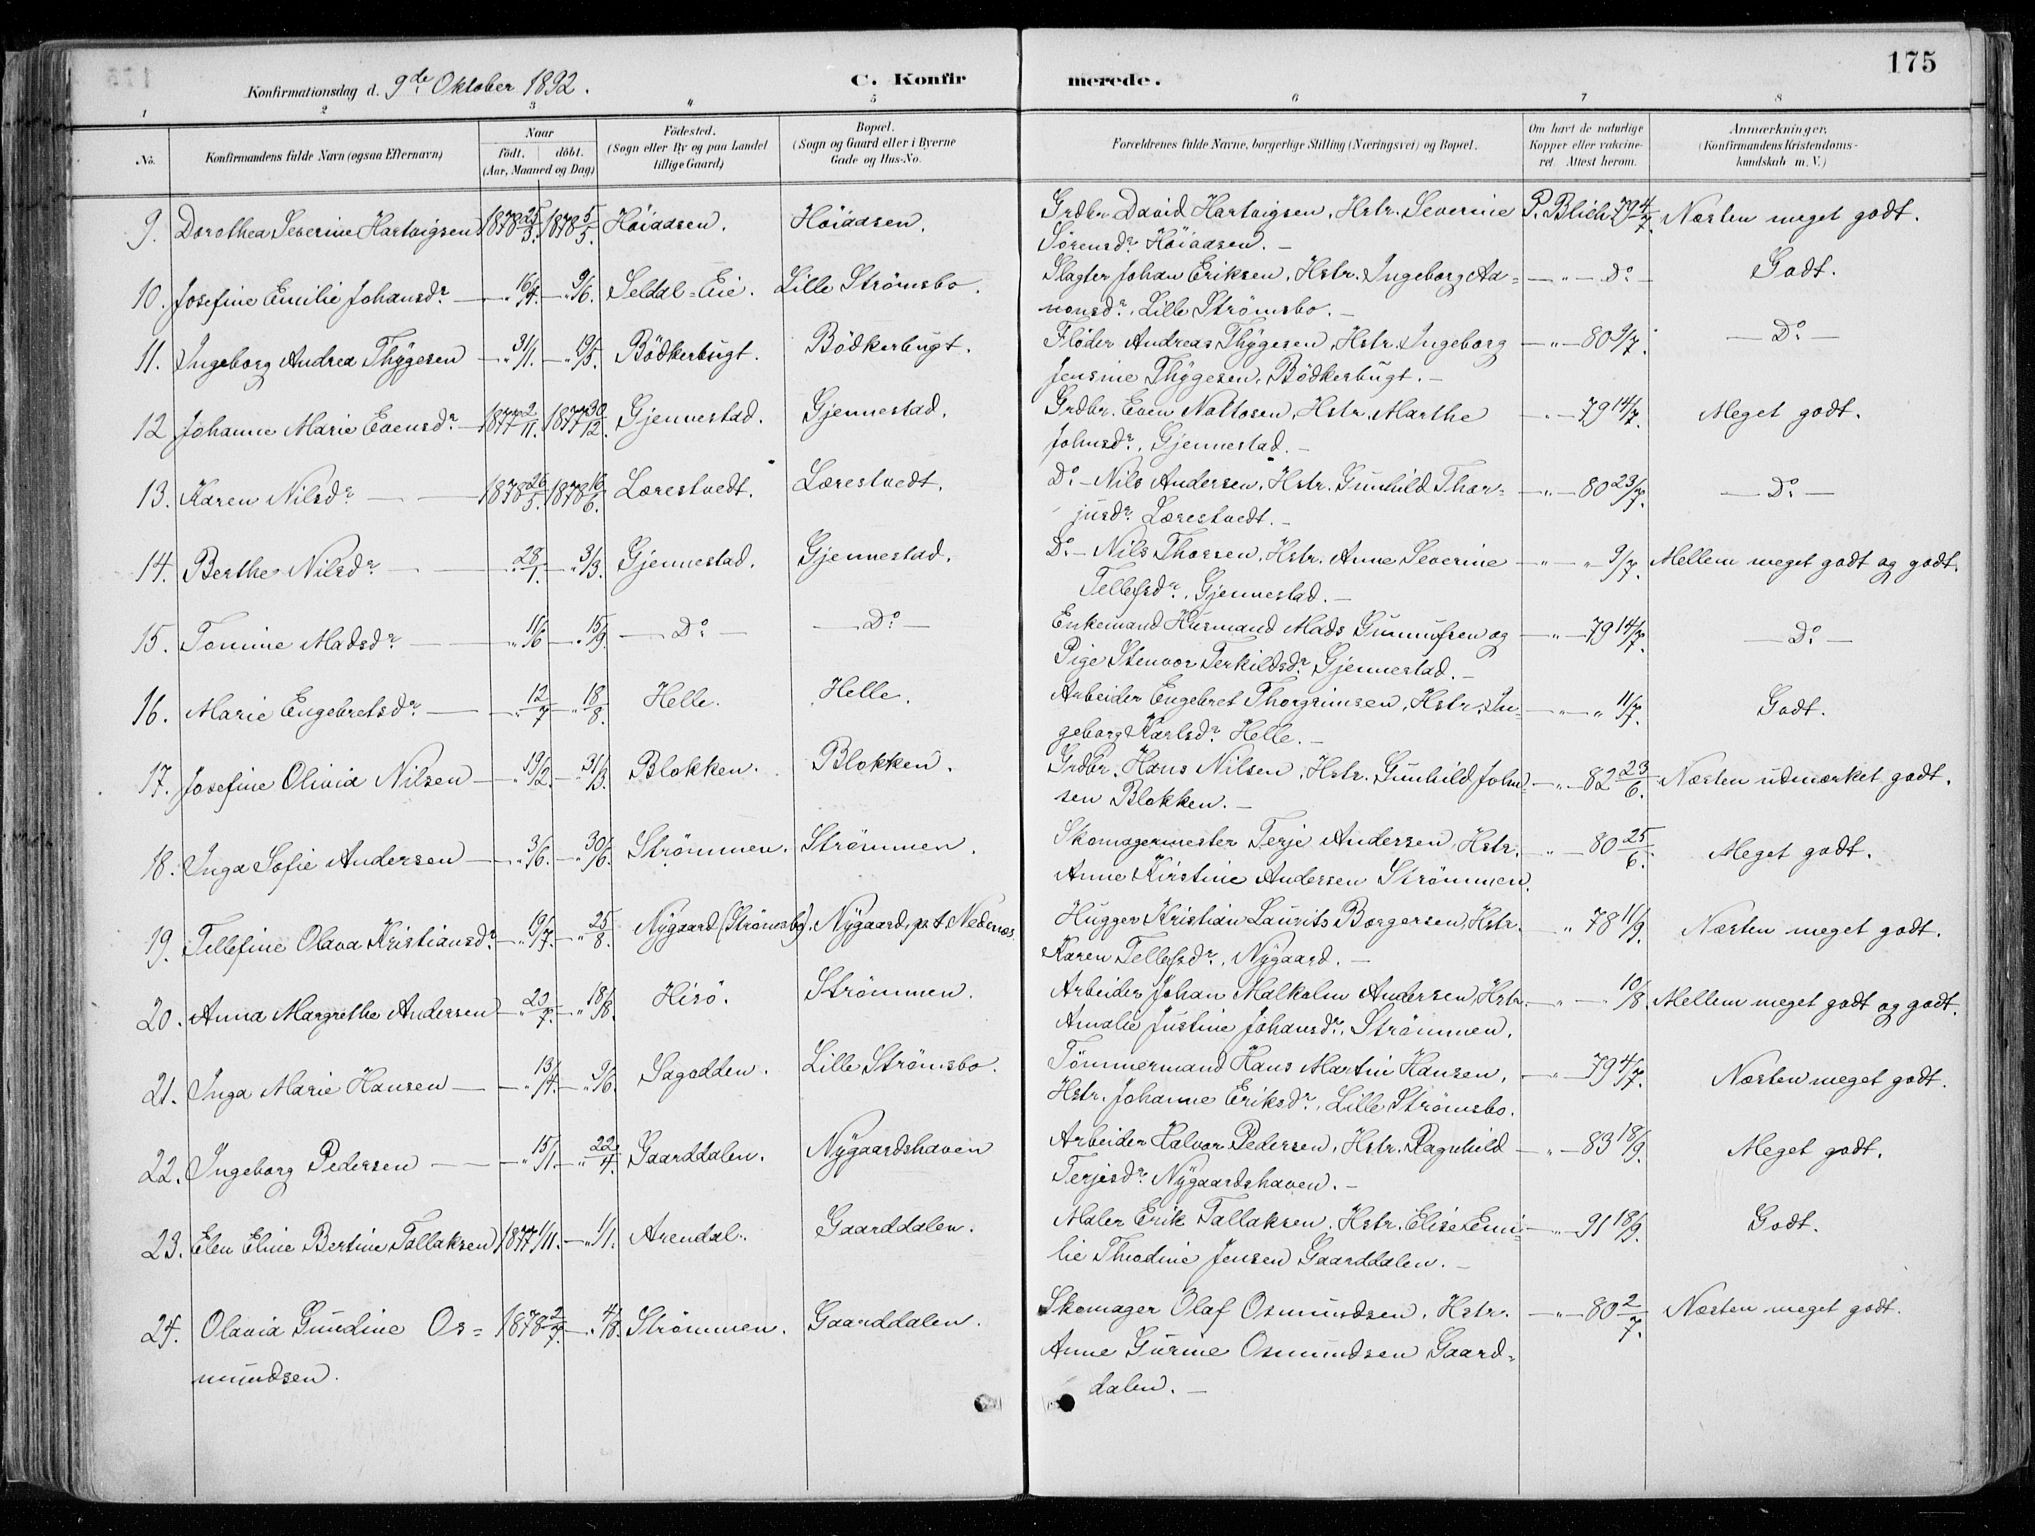 175
Konfirmationsdag d. 9de Oktober 1892.
C. Konfirmerede.
1 2 3 4 5 6 7 8
No. Konfirmandens fulde Navn (ogsaa Efternavn) Naar født. døbt. (Aar, Maaned og Dag) Födested. (Sogn eller By og paa Landet tillige Gaard) Bopæl. (Sogn og Gaard eller i Byerne Gade og Hus-No. Forældrenes fulde Navne, borgerlige Stilling (Næringsvei) og Bopæl. Om havt de naturlige Kopper eller vakcineret. Attest herom. Anmærkninger, (Konfirmandens Kristendomskundskab m. V.)
9. Dorothea Severine Hartvigsen 1878 25/3. 1878 5/5. Höiaasen. Höiaasen. Grdbr. David Hartvigsen, Hstr. Severine P. Blich 79 4/7. Næsten meget godt.
Sørensdr. Höiaasen. —
10. Josefine Emilie Johansdr. — „ 16/4. — „ 9/6. Seldal-Eie. Lille Strömsbo. Slagter Johan Eriksen, Hstr. Ingeborg Aa= — „ — Do Godt.
nonsdr., Lille Strömsbo. —
11. Ingeborg Andrea Thygesen — „ 31/1. — „ 19/5. Bödkerbugt. Bödkerbugt. Fløder Andreas Thygesen, Hstr. Ingeborg — „ — 80 9/7. — Do. —
Jensine Thygesen, Bödkerbugt. —
12 Johanne Marie Evensdr. — 1877 2/11. 1877 30/12. Gjennestad. Gjennestad. Grdbr. Even Nottosen, Hstr. Marthe — „ — 79 14/7. Meget godt.
Johnsdr., Gjennestad. —
13. Karen Nilsdr. — 1878 26/5. 1878 16/6. Lærestvedt. Lærestvedt. Do. — Nils Andersen, Hstr. Gunhild Thor= — „ — 80 23/7. — Do. —
jusdr. Lærestvedt. —
14. Berthe Nilsdr. — „ 28/1. — „ 3/3. Gjennestad. Gjennestad. Do. — Nils Thorsen, Hstr. Anne Severine — „ — „ 9/7. Mellem meget godt og godt.
Tellefsdr., Gjennestad. —
15. Tomine Madsdr. — „ 11/6 — „ 15/9. — Do. — — Do. — Enkemand Husmand Mads Gunnufsen og — „ — 79 14/7. — Do. —
Pige Stenvor Terkildsdr. Gjennestad. —
16. Marie Engebretsdr. — „ 12/7 — „ 18/8. Helle. Helle. Arbeider Engebret Thorgrimsen, Hstr. In= — „ — „ 11/7. Godt.
geborg Karlsdr. Helle. —
17. Josefine Olivia Nilsen — „ 19/2. — „ 31/3. Blokken. Blokken. Grdbr. Hans Nilsen, Hstr. Gunhild John= — „ — 82 23/6. Næsten udmærket godt.
sen Blokken. —
18. Inga Sofie Andersen — „ 3/6. — „ 30/6. Strömmen. Strömmen. Skomagermester Terje Andersen, Hstr. — „ — 80 25/6. Meget godt.
Anne Kirstine Andersen Strömmen.
19. Tellefine Olava Kristiansdr. — „ 19/7. — „ 25/8. Nygaard (Strömsbo). Nygaard, p. t. Nedenæs. Hugger Kristian Laurits Borgersen, Hstr. — „ 78 11/9. Næsten meget godt.
Karen Tellefsdr., Nygaard. —
20. Anna Margrethe Andersen — „ 23/7. — „ 18/8. Hisö. Strömmen. Arbeider Johan Malkolm Andersen, Hstr. — „ — „ 10/8. Mellem meget godt og godt.
Amalie Justine Johansdr., Strömmen.
21. Inga Marie Hansen — „ 13/4. — „ 9/6. Sagodden. Lille Strömsbo. Tömmermand Hans Martin Hansen, — „ — 79 4/7. Næsten meget godt.
Hstr. Johanne Eriksdr., Lille Strömsbo.
22. Ingeborg Pedersen — „ 15/1. — „ 22/4. Gaarddalen. Nygaardshaven Arbeider Halvor Pedersen, Hstr. Ragnhild — „ — 83 18/9. Meget godt.
Terjesdr. Nygaardshaven. —
23. Elen Eline Bertine Tallaksen 1877 1/11. — „ 1/1. Arendal. Gaarddalen. Maler Erik Tallaksen, Hstr. Elise Emi= — „ — 91 18/9. Godt.
lie Theodine Jensen Gaarddalen. —
24. Olavia Gundine Os= 1878 2/7. — „ 4/8. Strömmen. Gaarddalen. Skomager Olaf Osmundsen, Hstr. — „ — 80 2/7. Næsten meget godt.
mundsen. Anne Gurine Osmundsen Gaard=
dalen. —